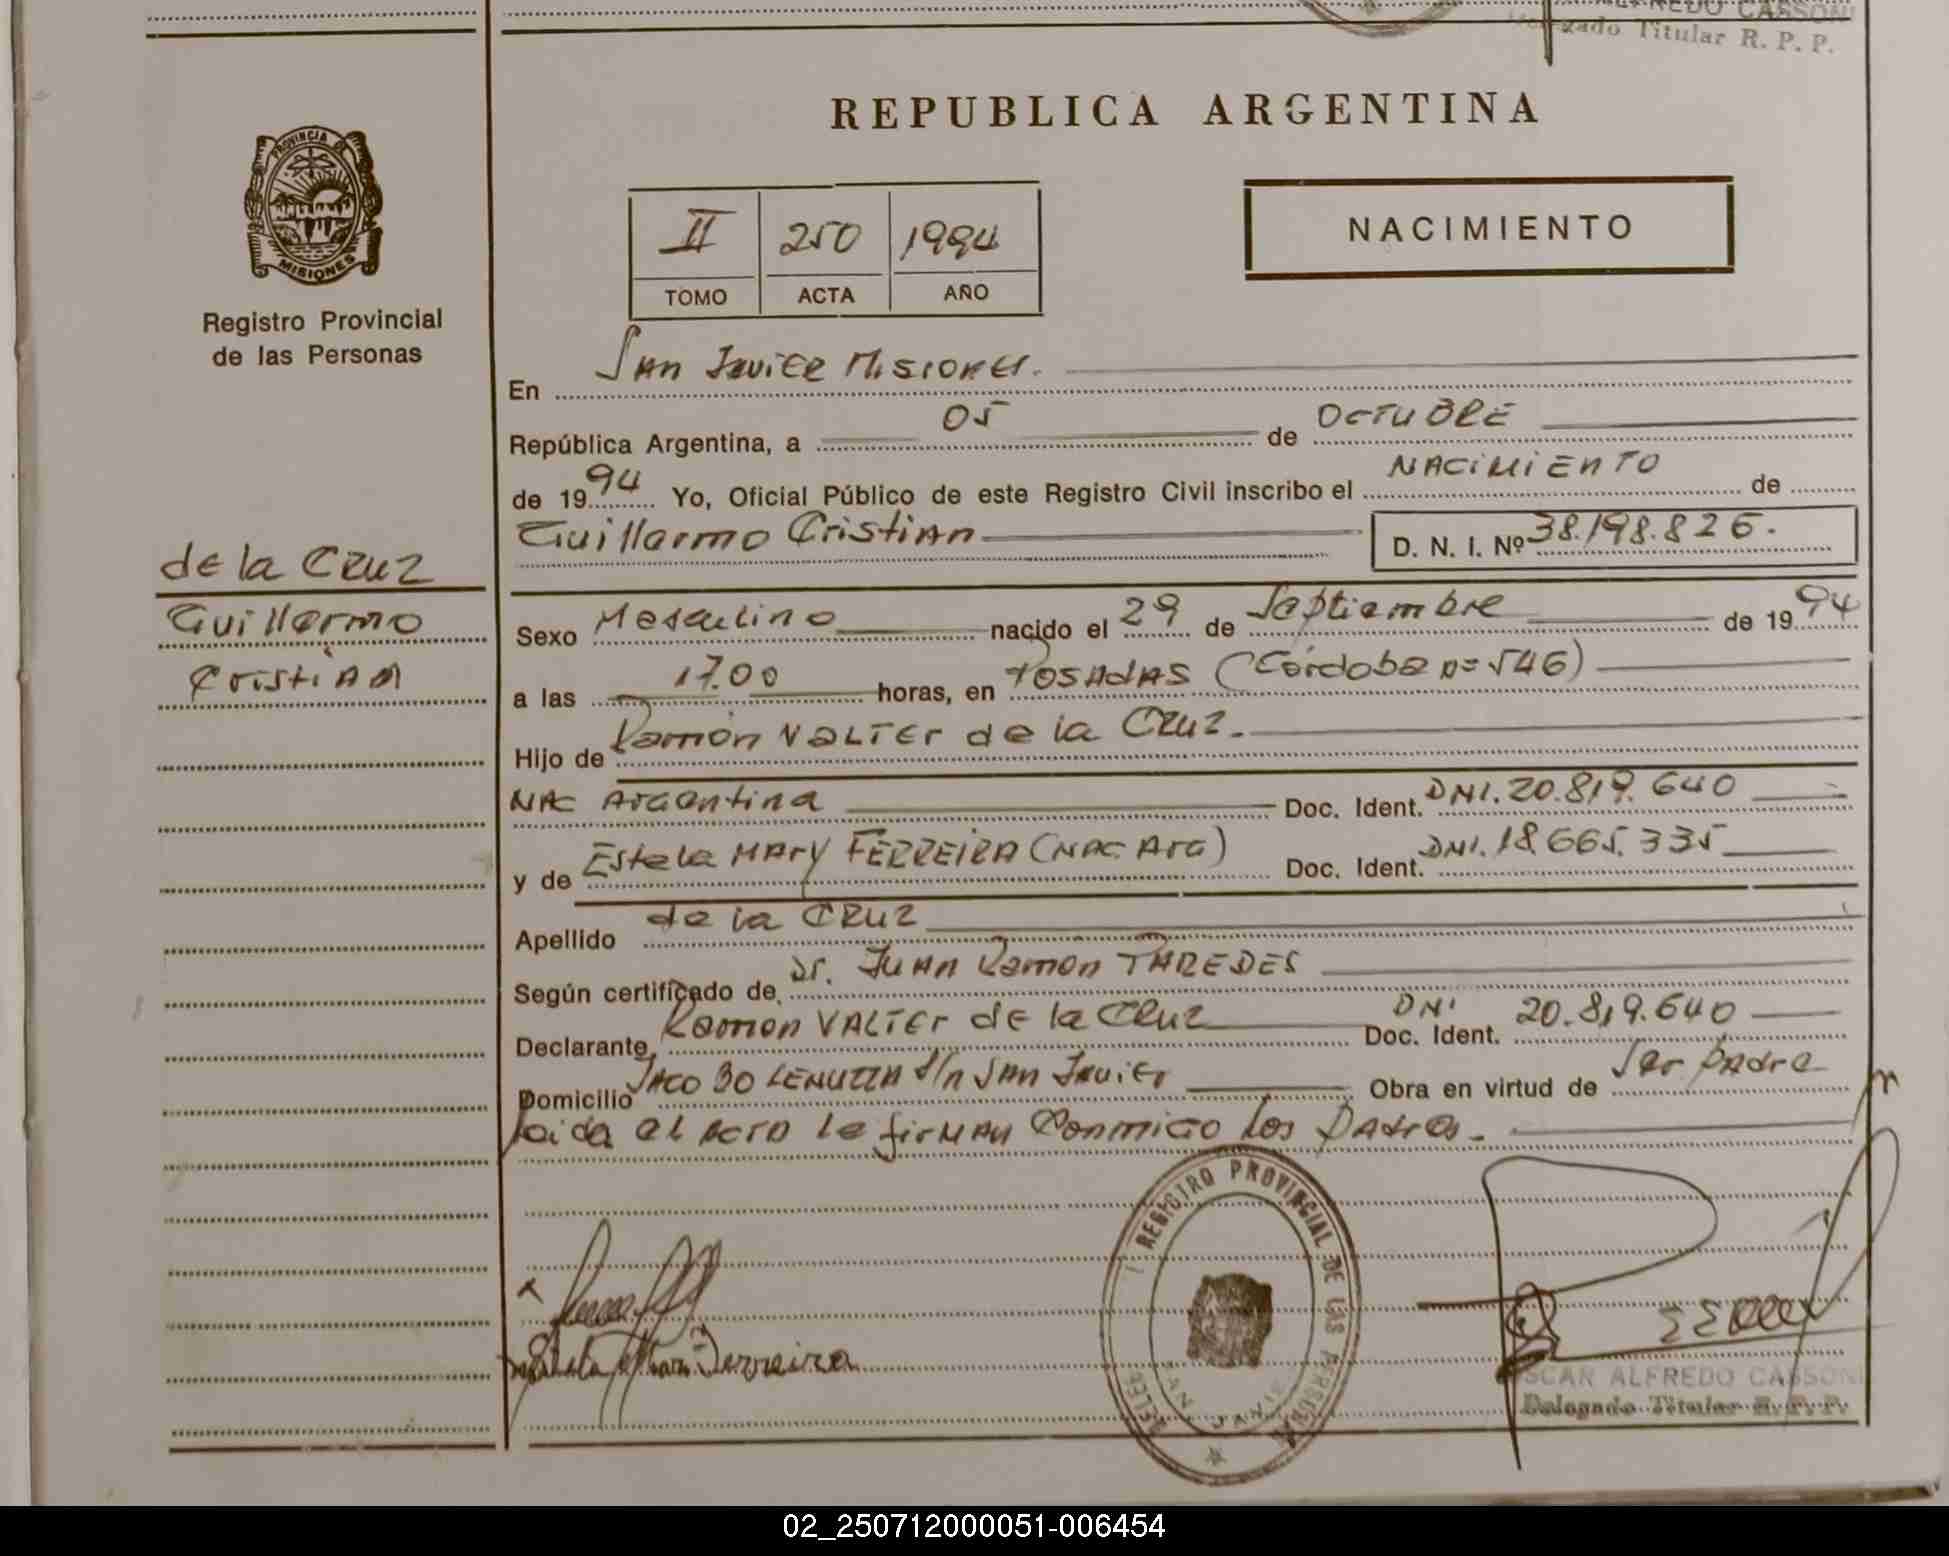 ALFREDO CASSONI
Delegado Titular R. P. P.
PROVINCIA DE
MISIONES
Registro Provincial
de las Personas
REPUBLICA ARGENTINA
NACIMIENTO
II 250 1994
TOMO ACTA AÑO
En San Javier Misiones.
República Argentina, a 05 de OCTUBRE
de 1994 Yo, Oficial Público de este Registro Civil inscribo el NACIMIENTO de
Guillermo Cristian D. N. I. Nº 38.198.826.
de la Cruz
Guillermo
Cristian
Sexo Masculino nacido el 29 de Septiembre de 1994
a las 17.00 horas, en Posadas (Córdoba n= 546)
Hijo de Ramón Valter de la Cruz.
Nac Argentina Doc. Ident. DNI. 20.819.640
y de Estela Mary FERREIRA (Nac. Arg) Doc. Ident. DNI. 18.665.335
Apellido de la Cruz
Según certificado de Dr. Juan Ramon PAREDES
Declarante Ramon Valter de la Cruz Doc. Ident. DNI 20.819.640
Domicilio s/n San Javier Obra en virtud de Ser Padre
Leida el acta la firman conmigo los Padres.
REGISTRO PROVINCIAL DE LAS PERSONAS
SAN JAVIER
Ferreira
OSCAR ALFREDO CASSONI
Delegado Titular R. P. P.
02_250712000051-006454